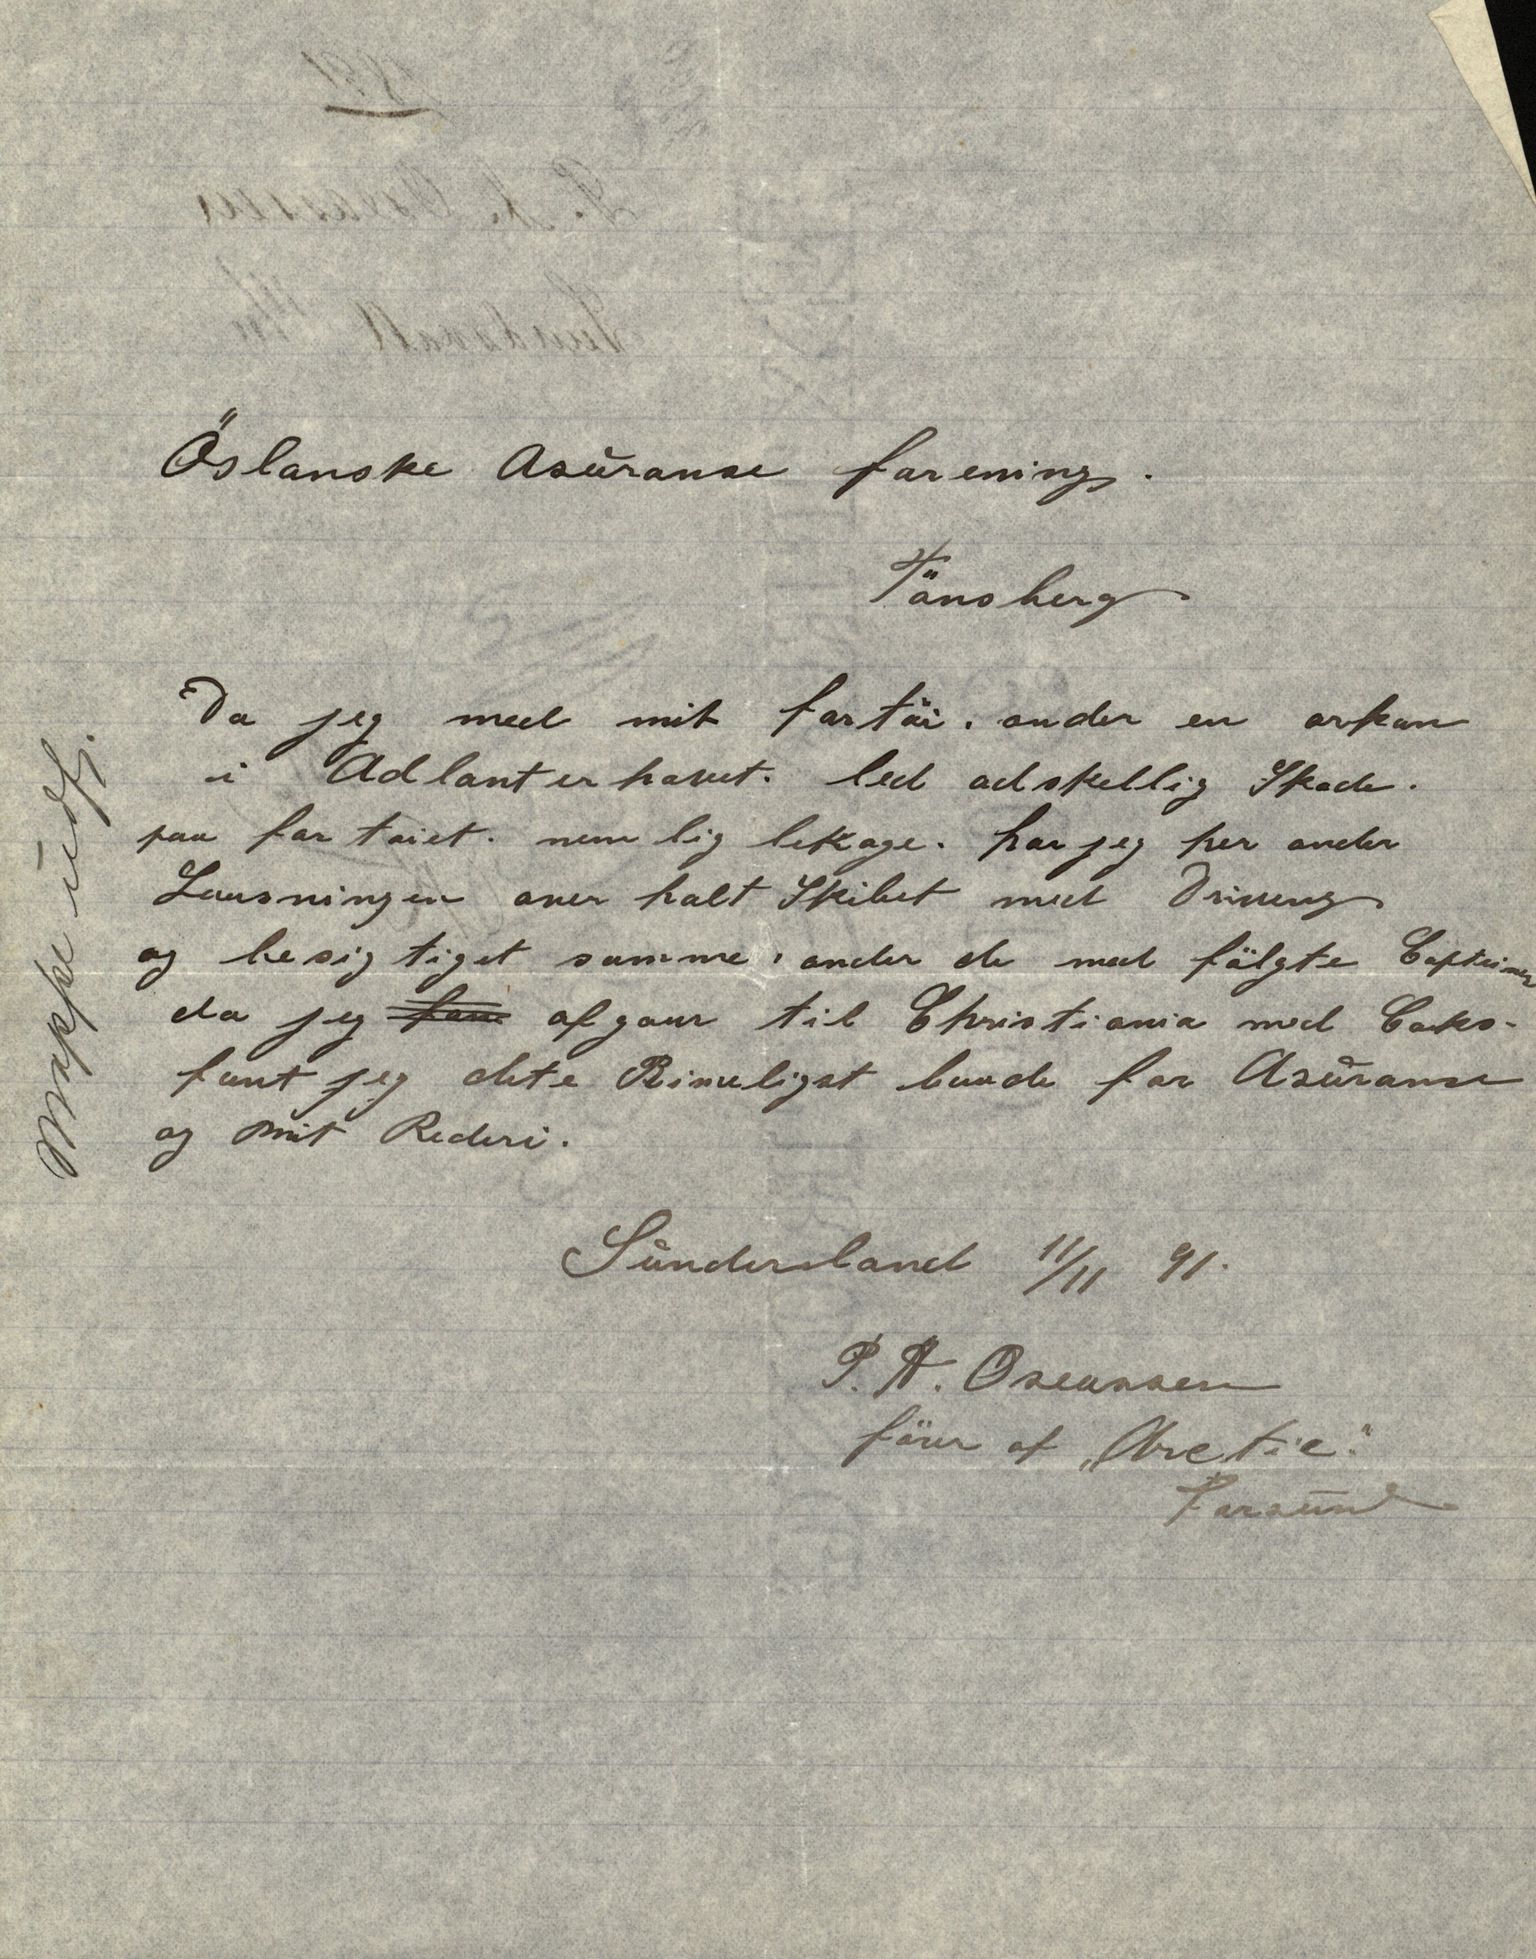 Öslanske Asŭranse farening.
Tönsberg
Da jeg med mit fartöi. onder en orkan
i Adlanterhavet. led adskellig Skade.
paa fartoiet. nemlig lekage. har jeg her onder
Laasningen over halt Skibet med Driveng
og besigtiget samme, onder de med fölgte Capteiner
da jeg afgaar til Christiania med Coks.
fant jeg dete Rimeligst baade for Asŭranse
og mit Rederi.
Sŭnderland 11/11 91.
P. A. Oseassen
förer af „Arctic"
Farsŭnd
Mappe ŭdf.